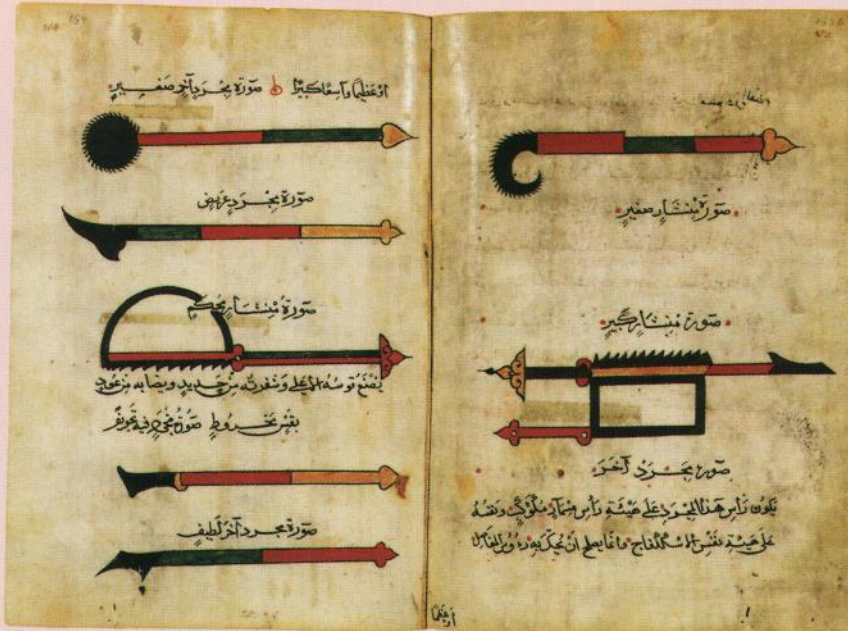 صورة منشار صغير
صورة منشار كبير
صورة مجرد آخر
يكون رأس هذا المجرد على هيئة رأس مسمار مكوكب ونقشه
على هيئة نقش الاسكلفاج وانما يصلح أن يحك به رءوس المفاصل
150
أو عظيما واسعا كبيرا صورة مجرد آخر صغير
صورة مجرد عريض
صورة منشار محكم
يصنع قوسه الاعلى وشفرته من حديد ونصابه من عود
بقس مخروط صورة مجرد فيه تجويف
صورة مجرد آخر لطيف